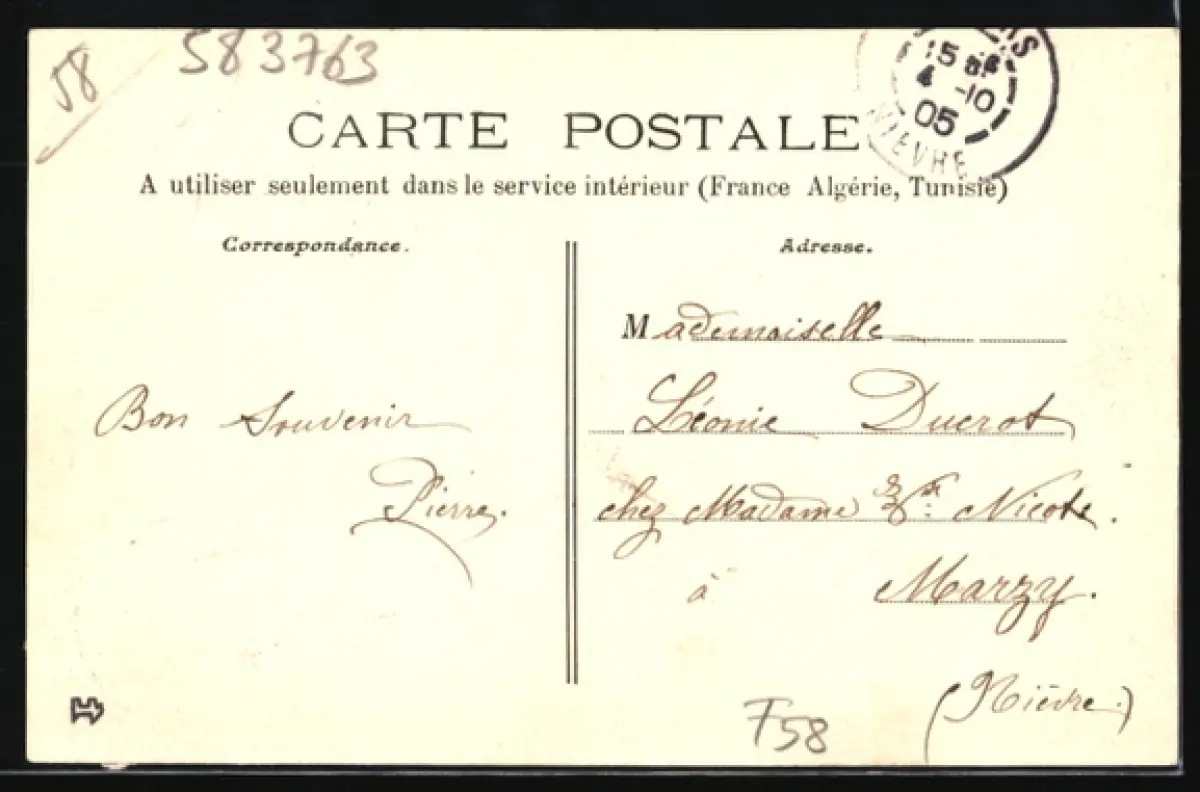 58
583763
15
4 -10
05
NIEVRE
CARTE POSTALE
A utiliser seulement dans le service intérieur (France Algérie, Tunisie)
Correspondance.
Adresse.
Mademoiselle
Léonie Ducrot
chez Madame Nicot
à Marzy.
(Nièvre.)
Bon Souvenir
Pierre.
F58